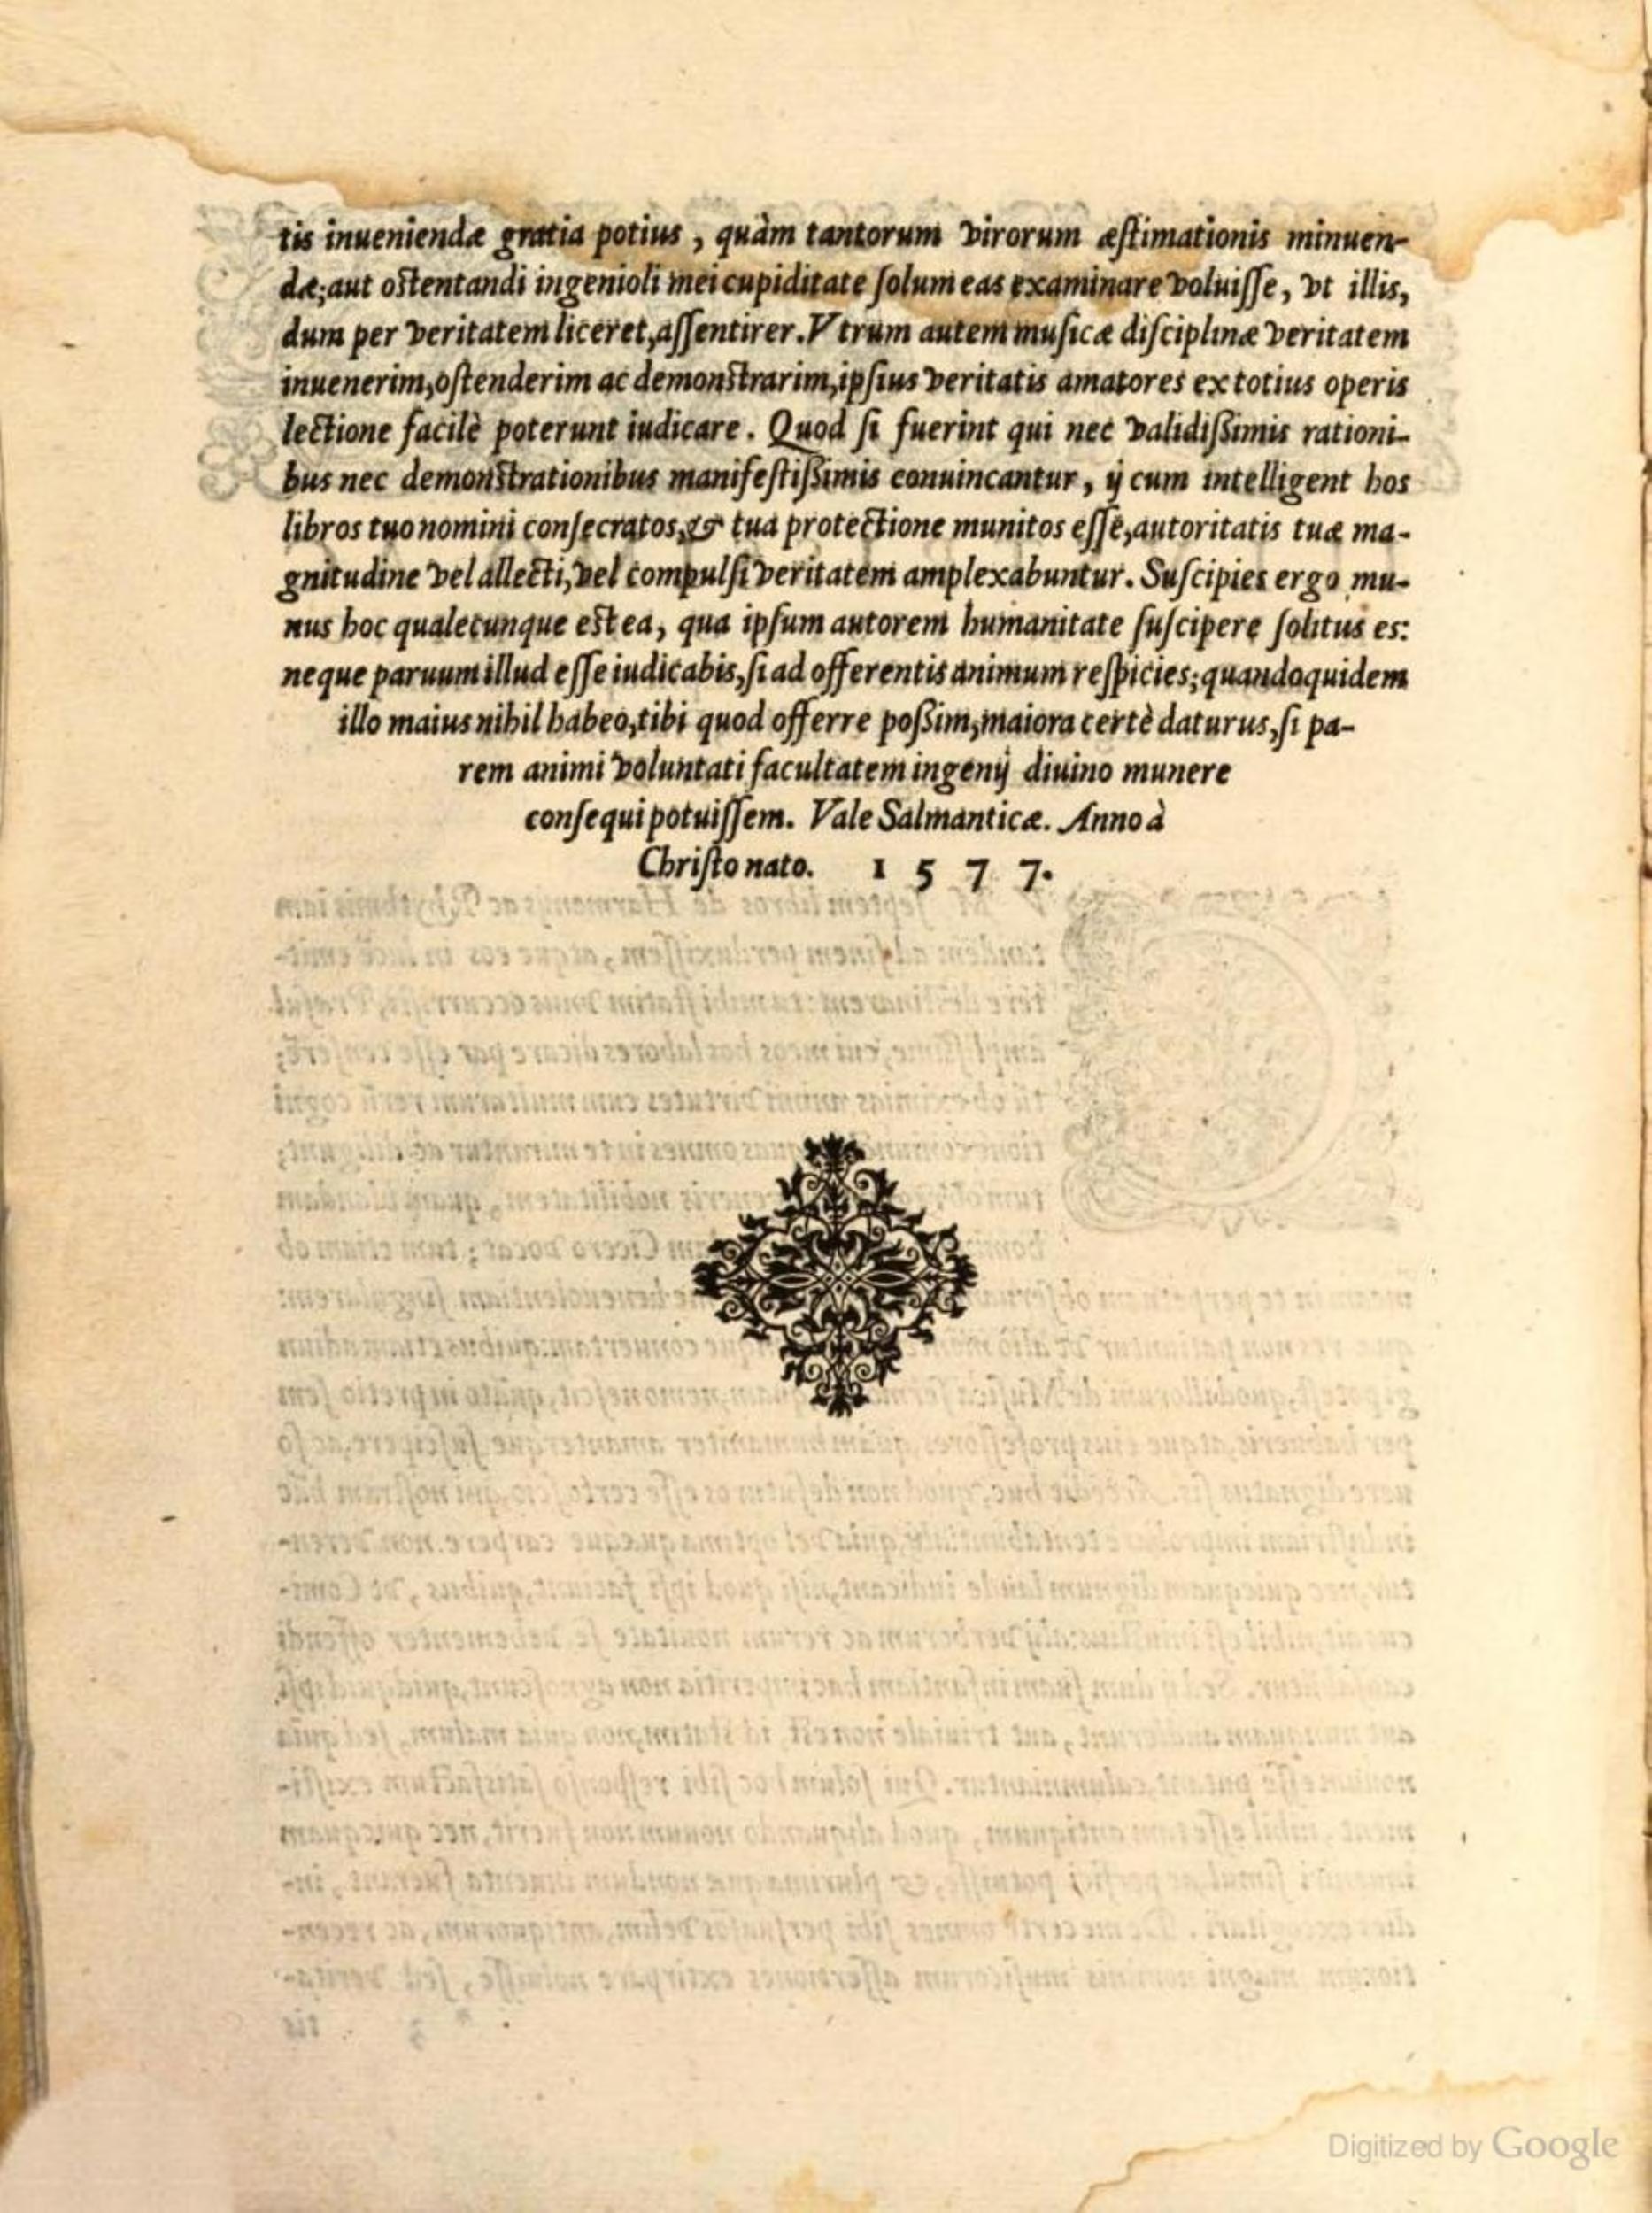 tis inueniendæ gratia potius, quàm tantorum virorum æstimationis minuen-
dæ; aut ostentandi ingenioli mei cupiditate solum eas examinare voluisse, vt illis,
dum per veritatem liceret, assentirer. Vtrum autem musicæ disciplinæ veritatem
inuenerim, ostenderim ac demonstrarim, ipsius veritatis amatores ex totius operis
lectione facilè poterunt iudicare. Quod si fuerint qui nec validissimis rationi-
bus nec demonstrationibus manifestissimis conuincantur, ij cum intelligent hos
libros tuo nomini consecratos, & tua protectione munitos esse, autoritatis tuæ ma-
gnitudine vel allecti, vel compulsi veritatem amplexabuntur. Suscipies ergo mu-
nus hoc qualecunque est ea, qua ipsum autorem humanitate suscipere solitus es:
neque paruum illud esse iudicabis, si ad offerentis animum respicies; quandoquidem
illo maius nihil habeo, tibi quod offerre possim, maiora certè daturus, si pa-
rem animi voluntati facultatem ingenij diuino munere
consequi potuissem. Vale Salmanticæ. Anno à
Christo nato. 1577.
Digitized by Google